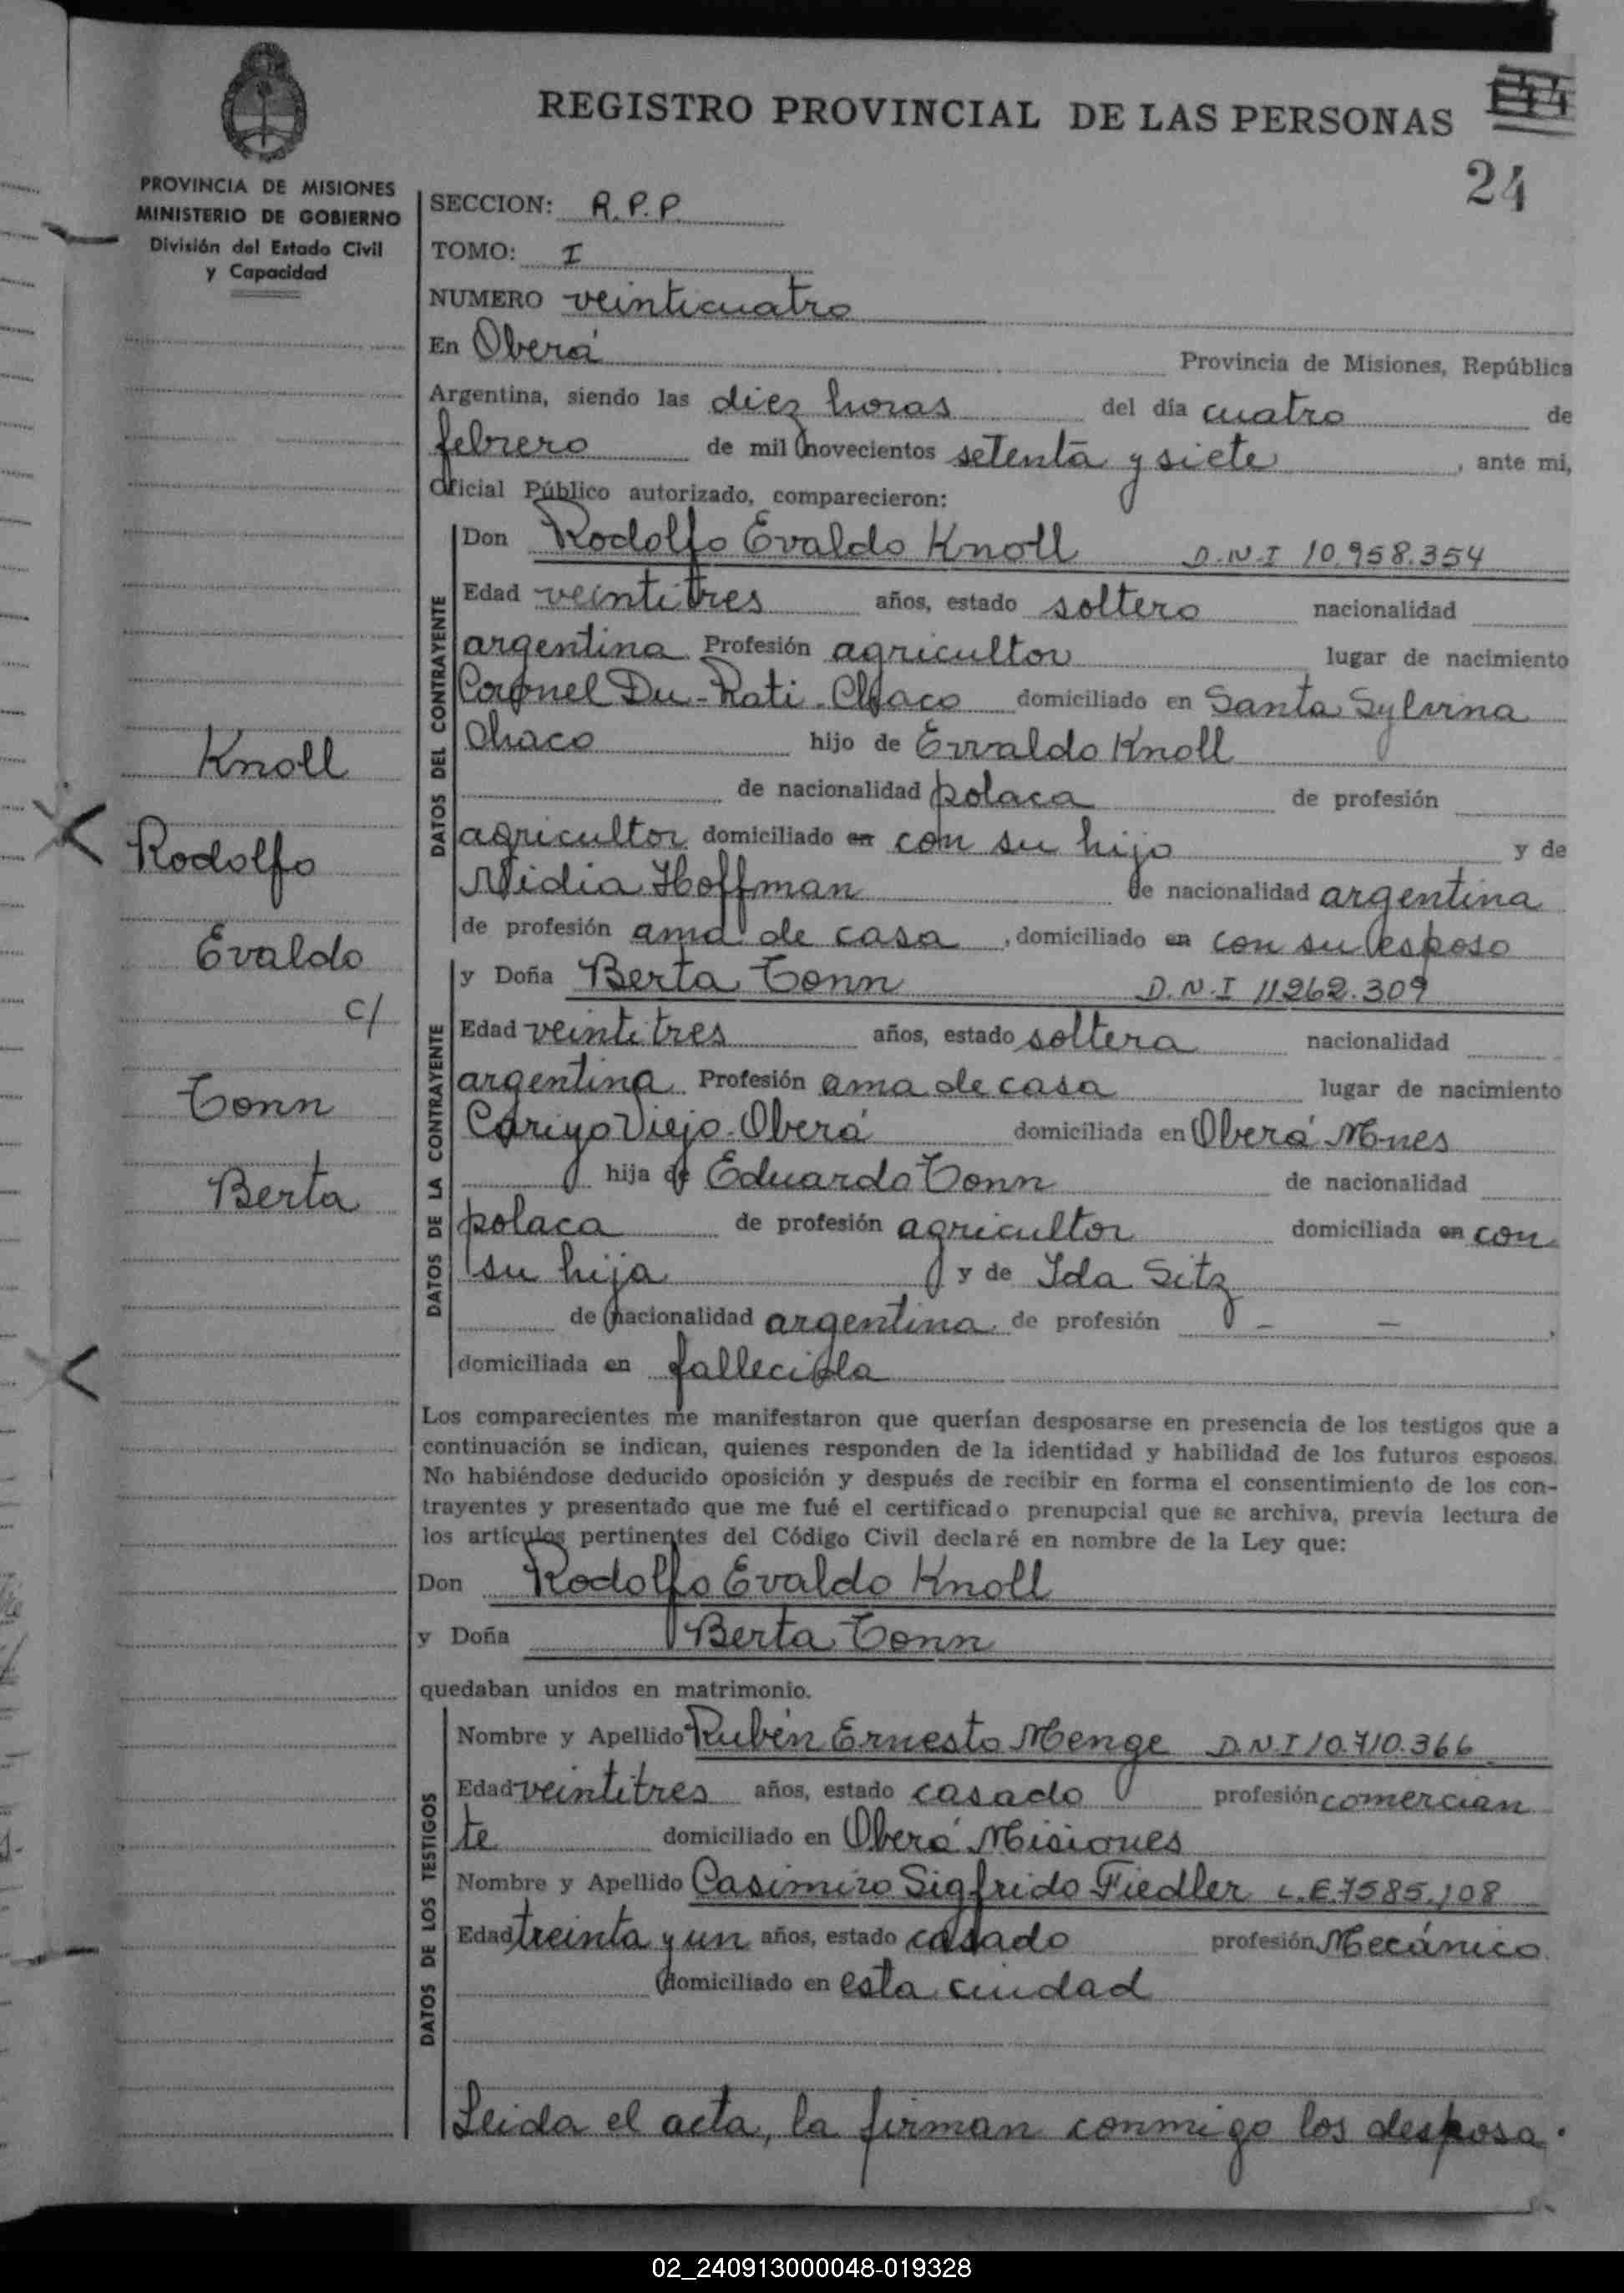 REGISTRO PROVINCIAL DE LAS PERSONAS
24
PROVINCIA DE MISIONES
MINISTERIO DE GOBIERNO
División del Estado Civil
y Capacidad
SECCION: R.P.P.
TOMO: I
NUMERO veinticuatro
En Oberá Provincia de Misiones, República
Argentina, siendo las diez horas del día cuatro de
febrero de mil novecientos setenta y siete, ante mi,
Oficial Público autorizado, comparecieron:
DATOS DEL CONTRAYENTE
Don Rodolfo Evaldo Knoll D.N.I 10.958.354
Edad veintitres años, estado soltero nacionalidad
argentina Profesión agricultor lugar de nacimiento
Coronel Du-Rati-Chaco domiciliado en Santa Sylvina
Chaco hijo de Ervaldo Knoll
de nacionalidad polaca de profesión
agricultor domiciliado en con su hijo y de
Nidia Hoffman de nacionalidad argentina
de profesión ama de casa, domiciliado en con su esposo
Knoll
Rodolfo
Evaldo
c/
Tonn
Berta
DATOS DE LA CONTRAYENTE
y Doña Berta Tonn D.N.I 11262.309
Edad veintitres años, estado soltera nacionalidad
argentina Profesión ama de casa lugar de nacimiento
Cariyo Viejo-Oberá domiciliada en Oberá Mnes
hija de Eduardo Tonn de nacionalidad
polaca de profesión agricultor domiciliada en con
su hija y de Ida Sitz
de nacionalidad argentina de profesión - -,
domiciliada en fallecida
Los comparecientes me manifestaron que querían desposarse en presencia de los testigos que a
continuación se indican, quienes responden de la identidad y habilidad de los futuros esposos.
No habiéndose deducido oposición y después de recibir en forma el consentimiento de los con-
trayentes y presentado que me fué el certificado prenupcial que se archiva, previa lectura de
los artículos pertinentes del Código Civil declaré en nombre de la Ley que:
Don Rodolfo Evaldo Knoll
y Doña Berta Tonn
quedaban unidos en matrimonio.
DATOS DE LOS TESTIGOS
Nombre y Apellido Rubén Ernesto Menge D.N.I 10.710.366
Edad veintitres años, estado casado profesión comercian
te domiciliado en Oberá Misiones
Nombre y Apellido Casimiro Sigfrido Fiedler L.E.7585.108
Edad treinta y un años, estado casado profesión Mecánico
domiciliado en esta ciudad
Leida el acta, la firman conmigo los desposa-
02_240913000048-019328